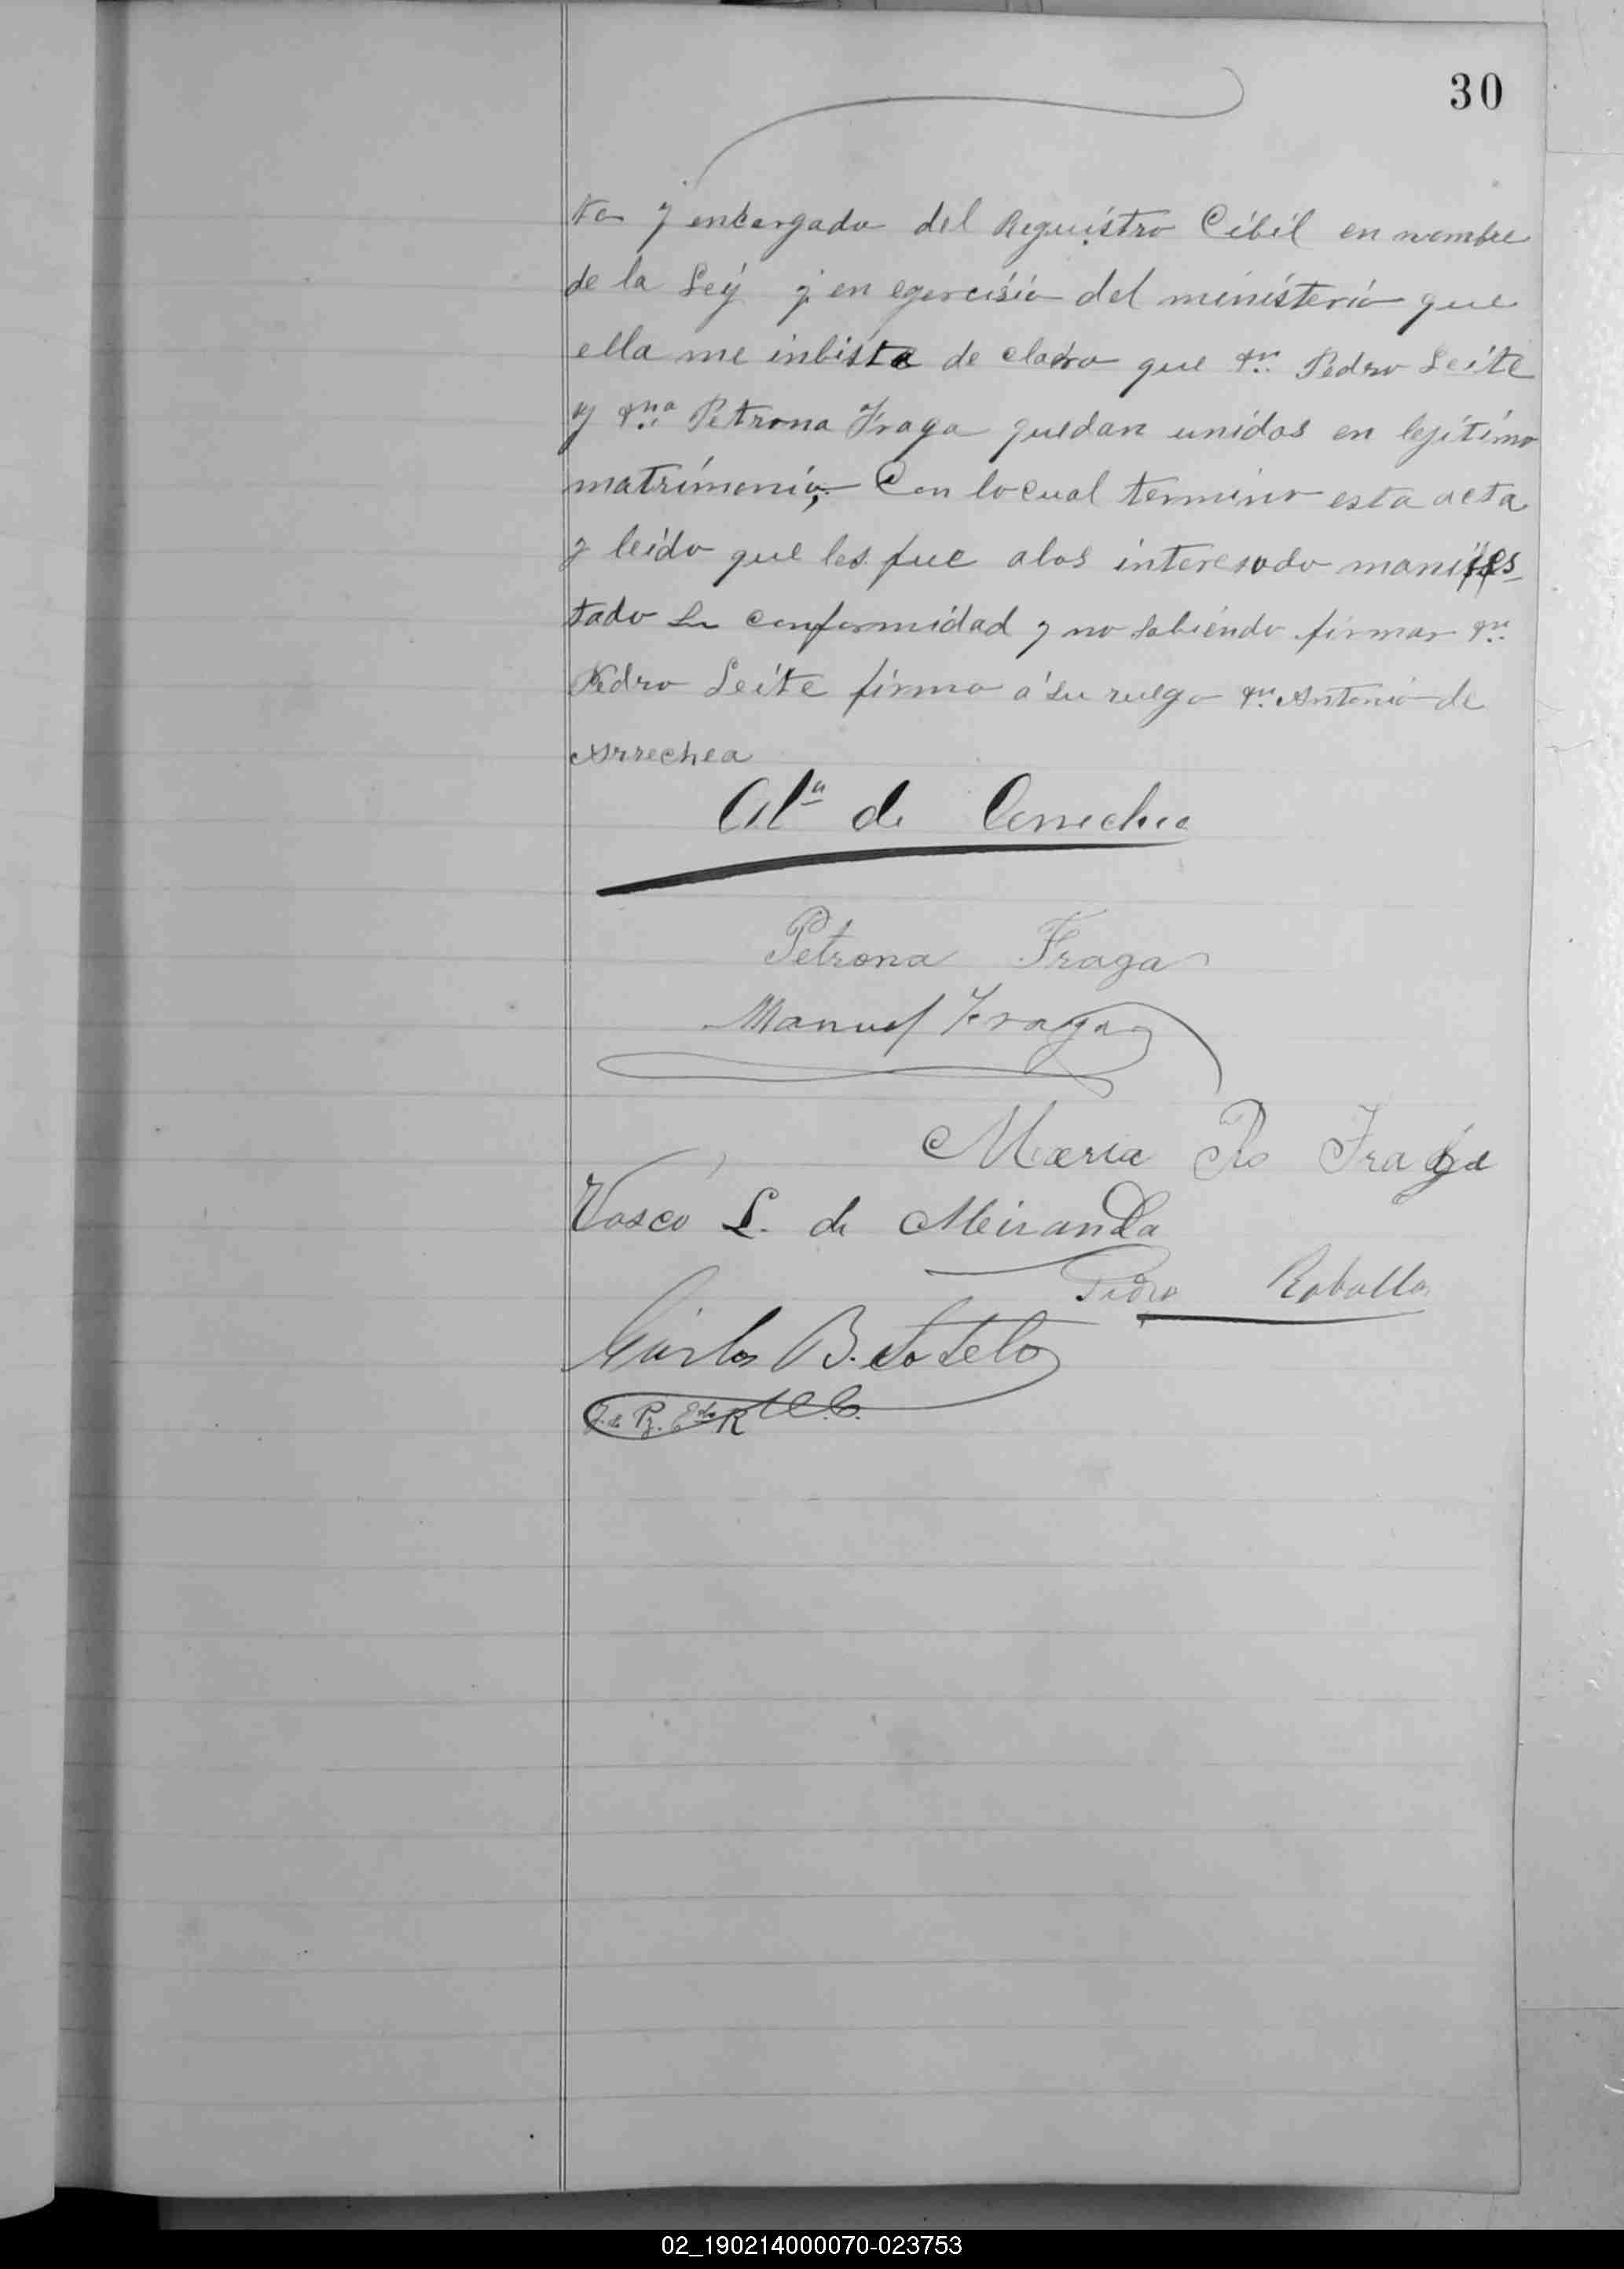 30
ta y encargado del Reguistro Cibil en nombre
de la Ley y en egercisio del ministerio que
ella me inbiste de claro que Dn. Pedro Leite
y Dna. Petrona Fraga quedan unidos en lejitimo
matrimonio; Con locual termino esta acta
y leido que les fue alos interesado manifes-
tado su conformidad y no sabiendo firmar Dn.
Pedro Leite firma á su ruego Dn. Antonio de
Arrechea
de Arrechea
Petrona Fraga
Manuel Fraga
Maria Fraga
Vasco L. de Miranda
Pedro Rabollo
Carlos B. Sotelo
J. de Pz. Edo R C.
02_190214000070-023753